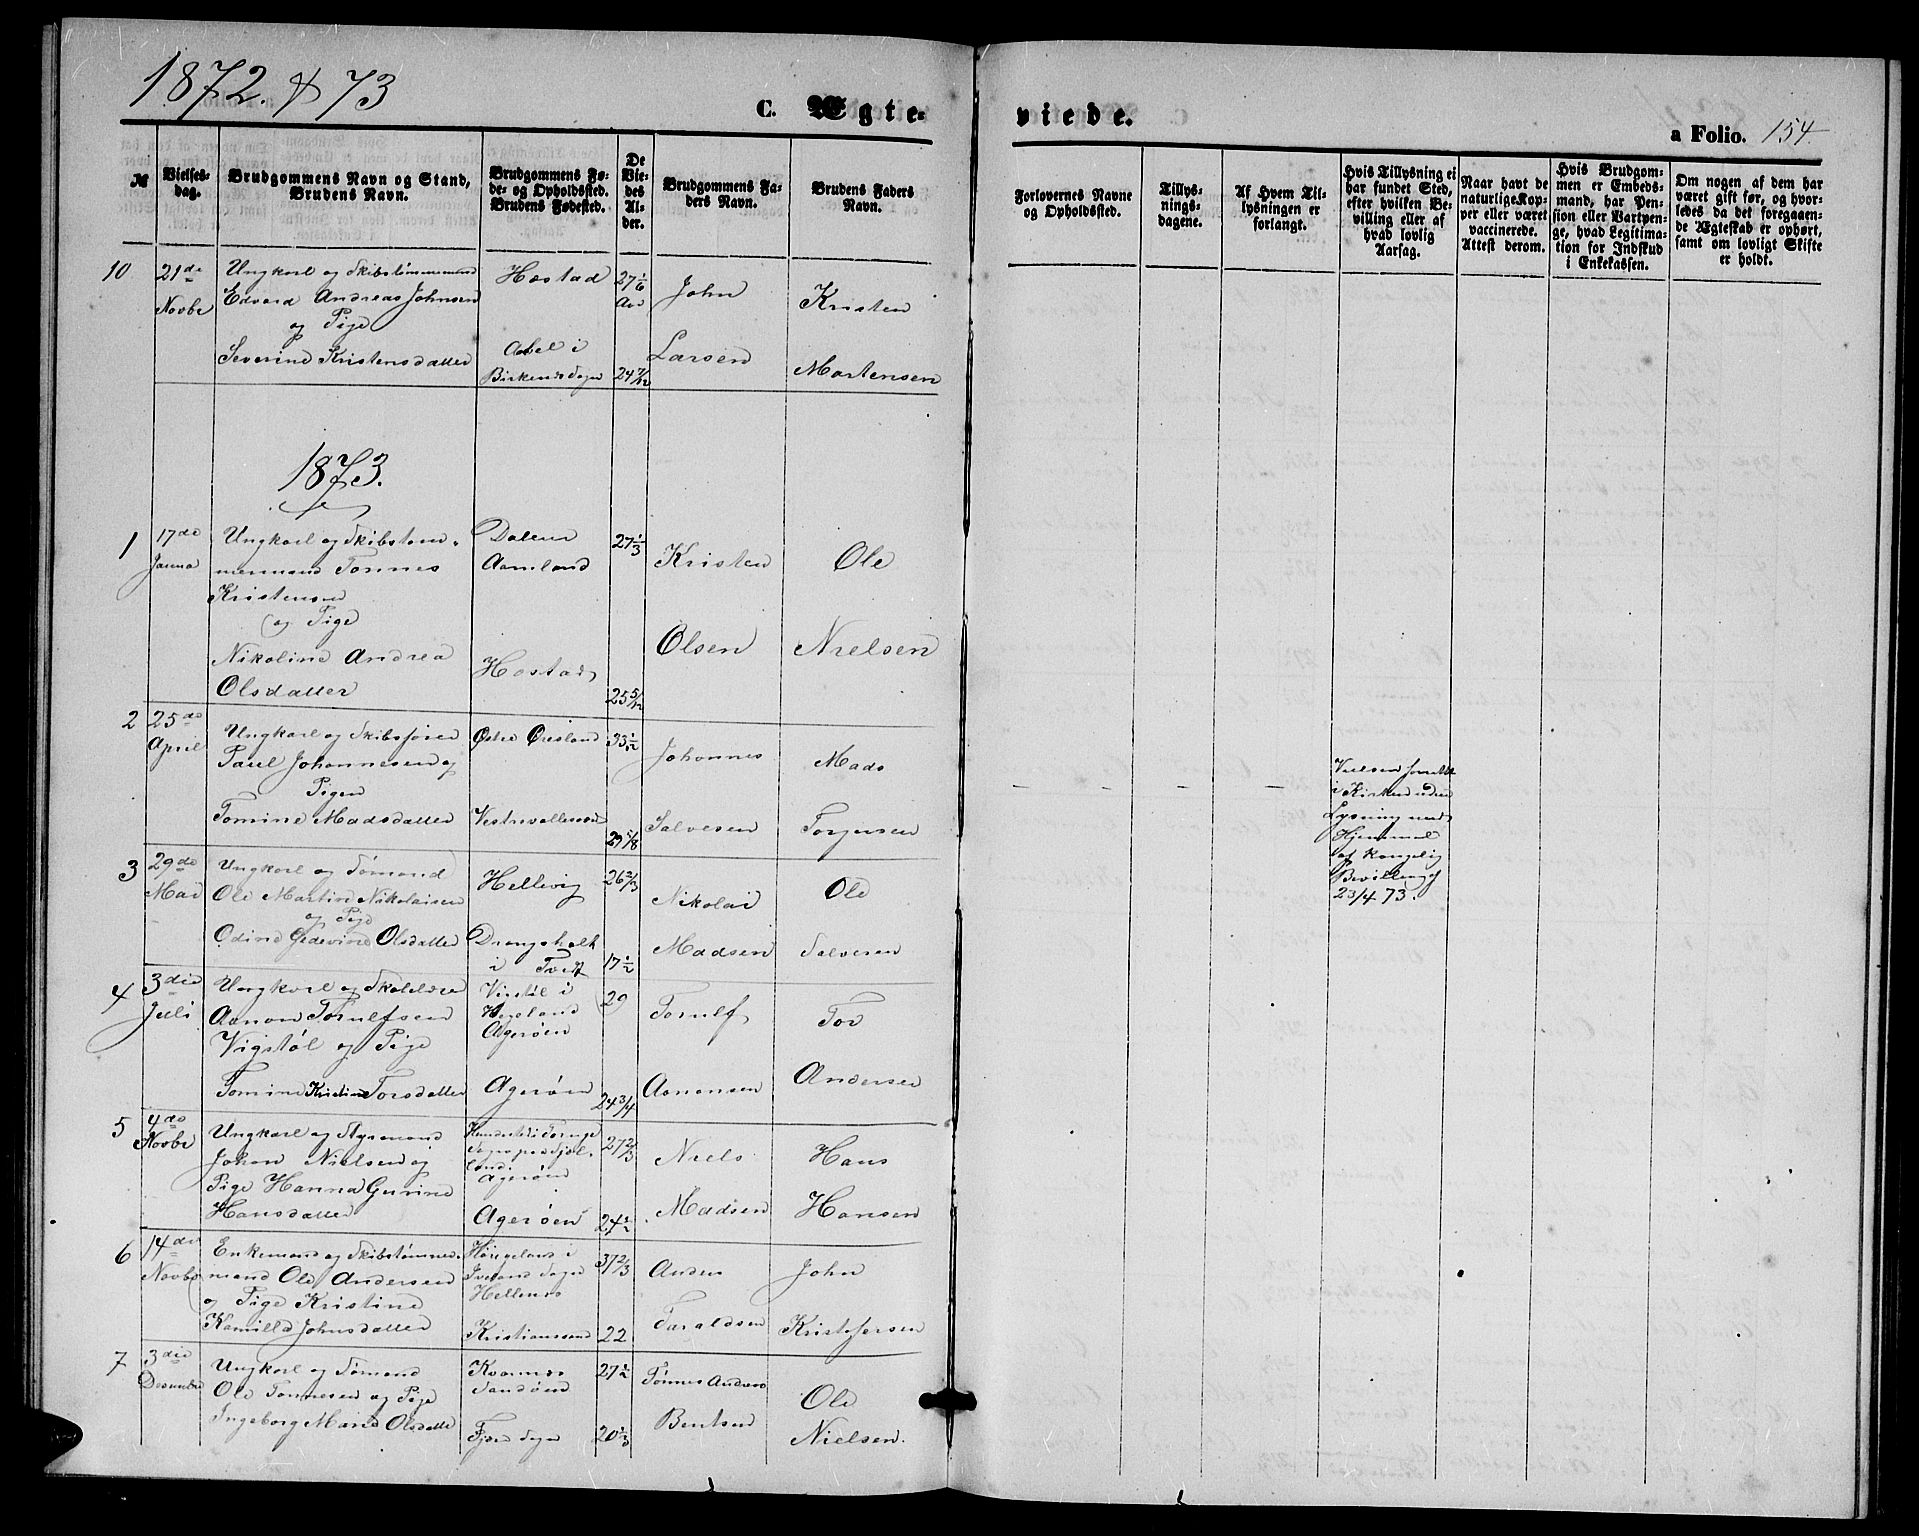 1872. & 73
C. Ægte-
viede.
a Folio. 154.
№
Vielses-
dag.
Brudgommens Navn og Stand,
Brudens Navn.
Brudgommens Fø-
de- og Opholdssted.
Brudens Fødested.
De
Vie-
des
Al-
der.
Brudgommens Fa-
ders Navn.
Brudens Faders
Navn.
Forlovernes Navne
og Opholdssted.
Tillys-
nings-
dagene.
Af Hvem Til-
lysningen er
forlangt.
Hvis Tillysning ei
har fundet Sted,
efter hvilken Be-
villing eller af
hvad lovlig
Aarsag.
Naar havt de
naturlige Kop-
per eller været
vaccinerede.
Attest derom.
Hvis Brudgom-
men er Embeds-
mand, har Pen-
sion eller Vartpen-
ge, hvad Legitima-
tion for Indskud
i Enkekassen.
Om nogen af dem har
været gift før, og hvor-
ledes da det foregaaen-
de Ægteskab er ophørt,
samt om lovligt Skifte
er holdt.
10
21de
Novbr
Ungkarl og Skibstømmermand
Edvard Andreas Johnsen
og Pige
Severine Kristensdatter
Høstad
Aabel i
Birkenes Sogn
27 1/6
Aar
24 7/12
John
Larsen
Kristen
Martensen
1873.
1
17de
Janua
Ungkarl og Skibstøm-
mermand Tønnes
Kristensen
og Pige
Nikoline Andrea
Olsdatter
Dalene
Aamland
Høstad
27 1/3
25 5/12
Kristen
Olsen
Ole
Nielsen
2
25de
April
Ungkarl og Skibsfører
Paul Johannesen og
Pigen
Tomine Madsdatter
Østre Øresland
Vestrevallesverd
33 1/2
29 5/8
Johannes
Salvesen
Mads
Torjusen
- - -
Vielsen forrettet
i Kirken uden
Lysning med
Hjemmel
af kongelig
Bevilling af
23/4 73.
3
29de
Mai
Ungkarl og Sømand
Ole Martin Nikolaisen
og Pige
Odine Gedevine Olsdatter
Hellevig
Drangsholt
i Tveit
26 2/3
17 1/2
Nikolai
Madsen
Ole
Salvesen
4
3die
Juli
Ungkarl og Skolelærer
Aanon Torulfsen
Vigstøl og Pige
Tomine Kristine Torsdatter
Vigstøl i
Vegusland
Agerøen
Agerøen
29
24 3/4
Torulf
Aanonsen
Tor
Andersen
5
4de
Novbr
Ungkarl og Styrmand
Johan Nielsen og
Pige Hanna Gurine
Hansdatter
Hundested i Torup
Sogn paa Sjæl-
land
Agerøen
Agerøen
27 2/3
24 1/2
Niels
Madsen
Hans
Hansen
6
14de
Novbr
Enkemand og Skibstømmer-
mand Ole Andersen
og Pige Kristine
Kamilla Johnsdatter
Høigeland i
Iveland Sogn
Hellenes
Kristianssand
37 2/3
22
Anders
Taraldsen
John
Kristofersen
7
3die
December
Ungkarl og Sømand
Ole Tønnesen og Pige
Ingeborg Marie Olsdatter
Kvannes
Sandøen
Fjære Sogn
27 1/2
20 1/3
Tønnes Anders
Bentsen
Ole
Nielsen.